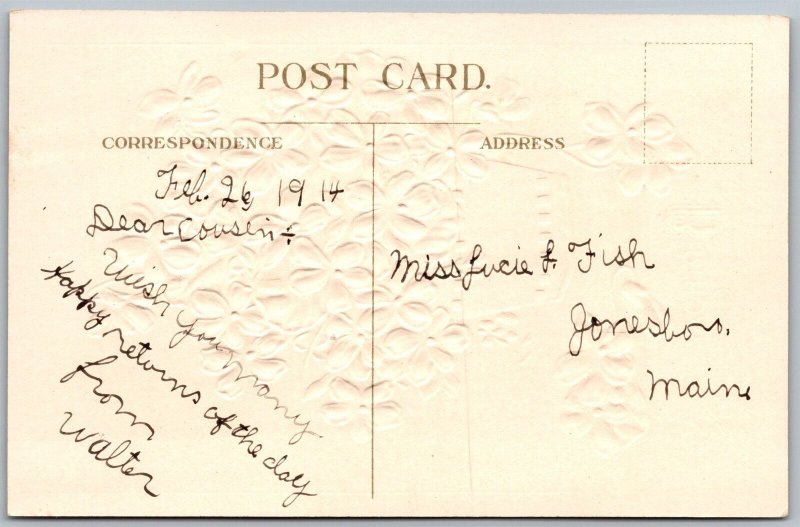 POST CARD.
CORRESPONDENCE
Feb. 26, 1914
Dear Cousin:
Wish you many
Happy returns of the day
from
Walter
ADDRESS
Miss Lucie L. Fish
Jonesboro,
Maine